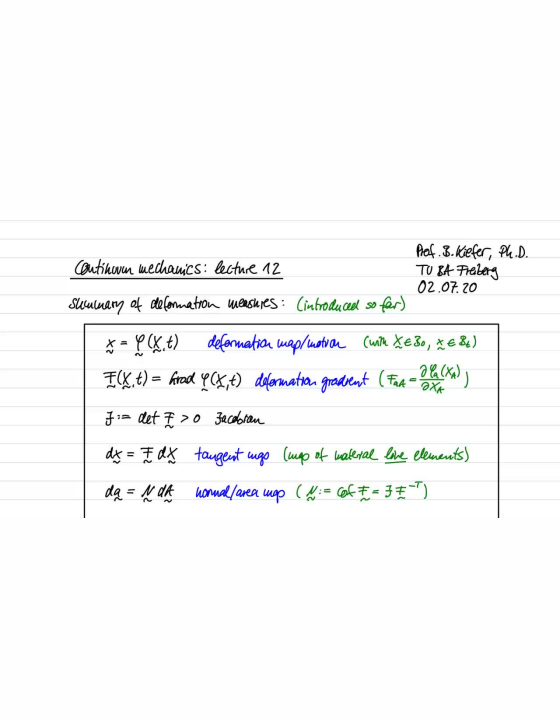 Prof. B. Kiefer, Ph.D.
Continuum mechanics: lecture 12
TU BA Freiberg
02.07.20
Summary of deformation measures: (introduced so far)
x = φ(X,t) deformation map/motion (with X ∈ B₀, x ∈ Bₜ)
F(X,t) = Grad φ(X,t) deformation gradient (F_aA = ∂φ_a(X_A)/∂X_A)
J := det F > 0 Jacobian
dx = F dX tangent map (map of material line elements)
da = N dA normal/area map (N := cof F = J F^-T)